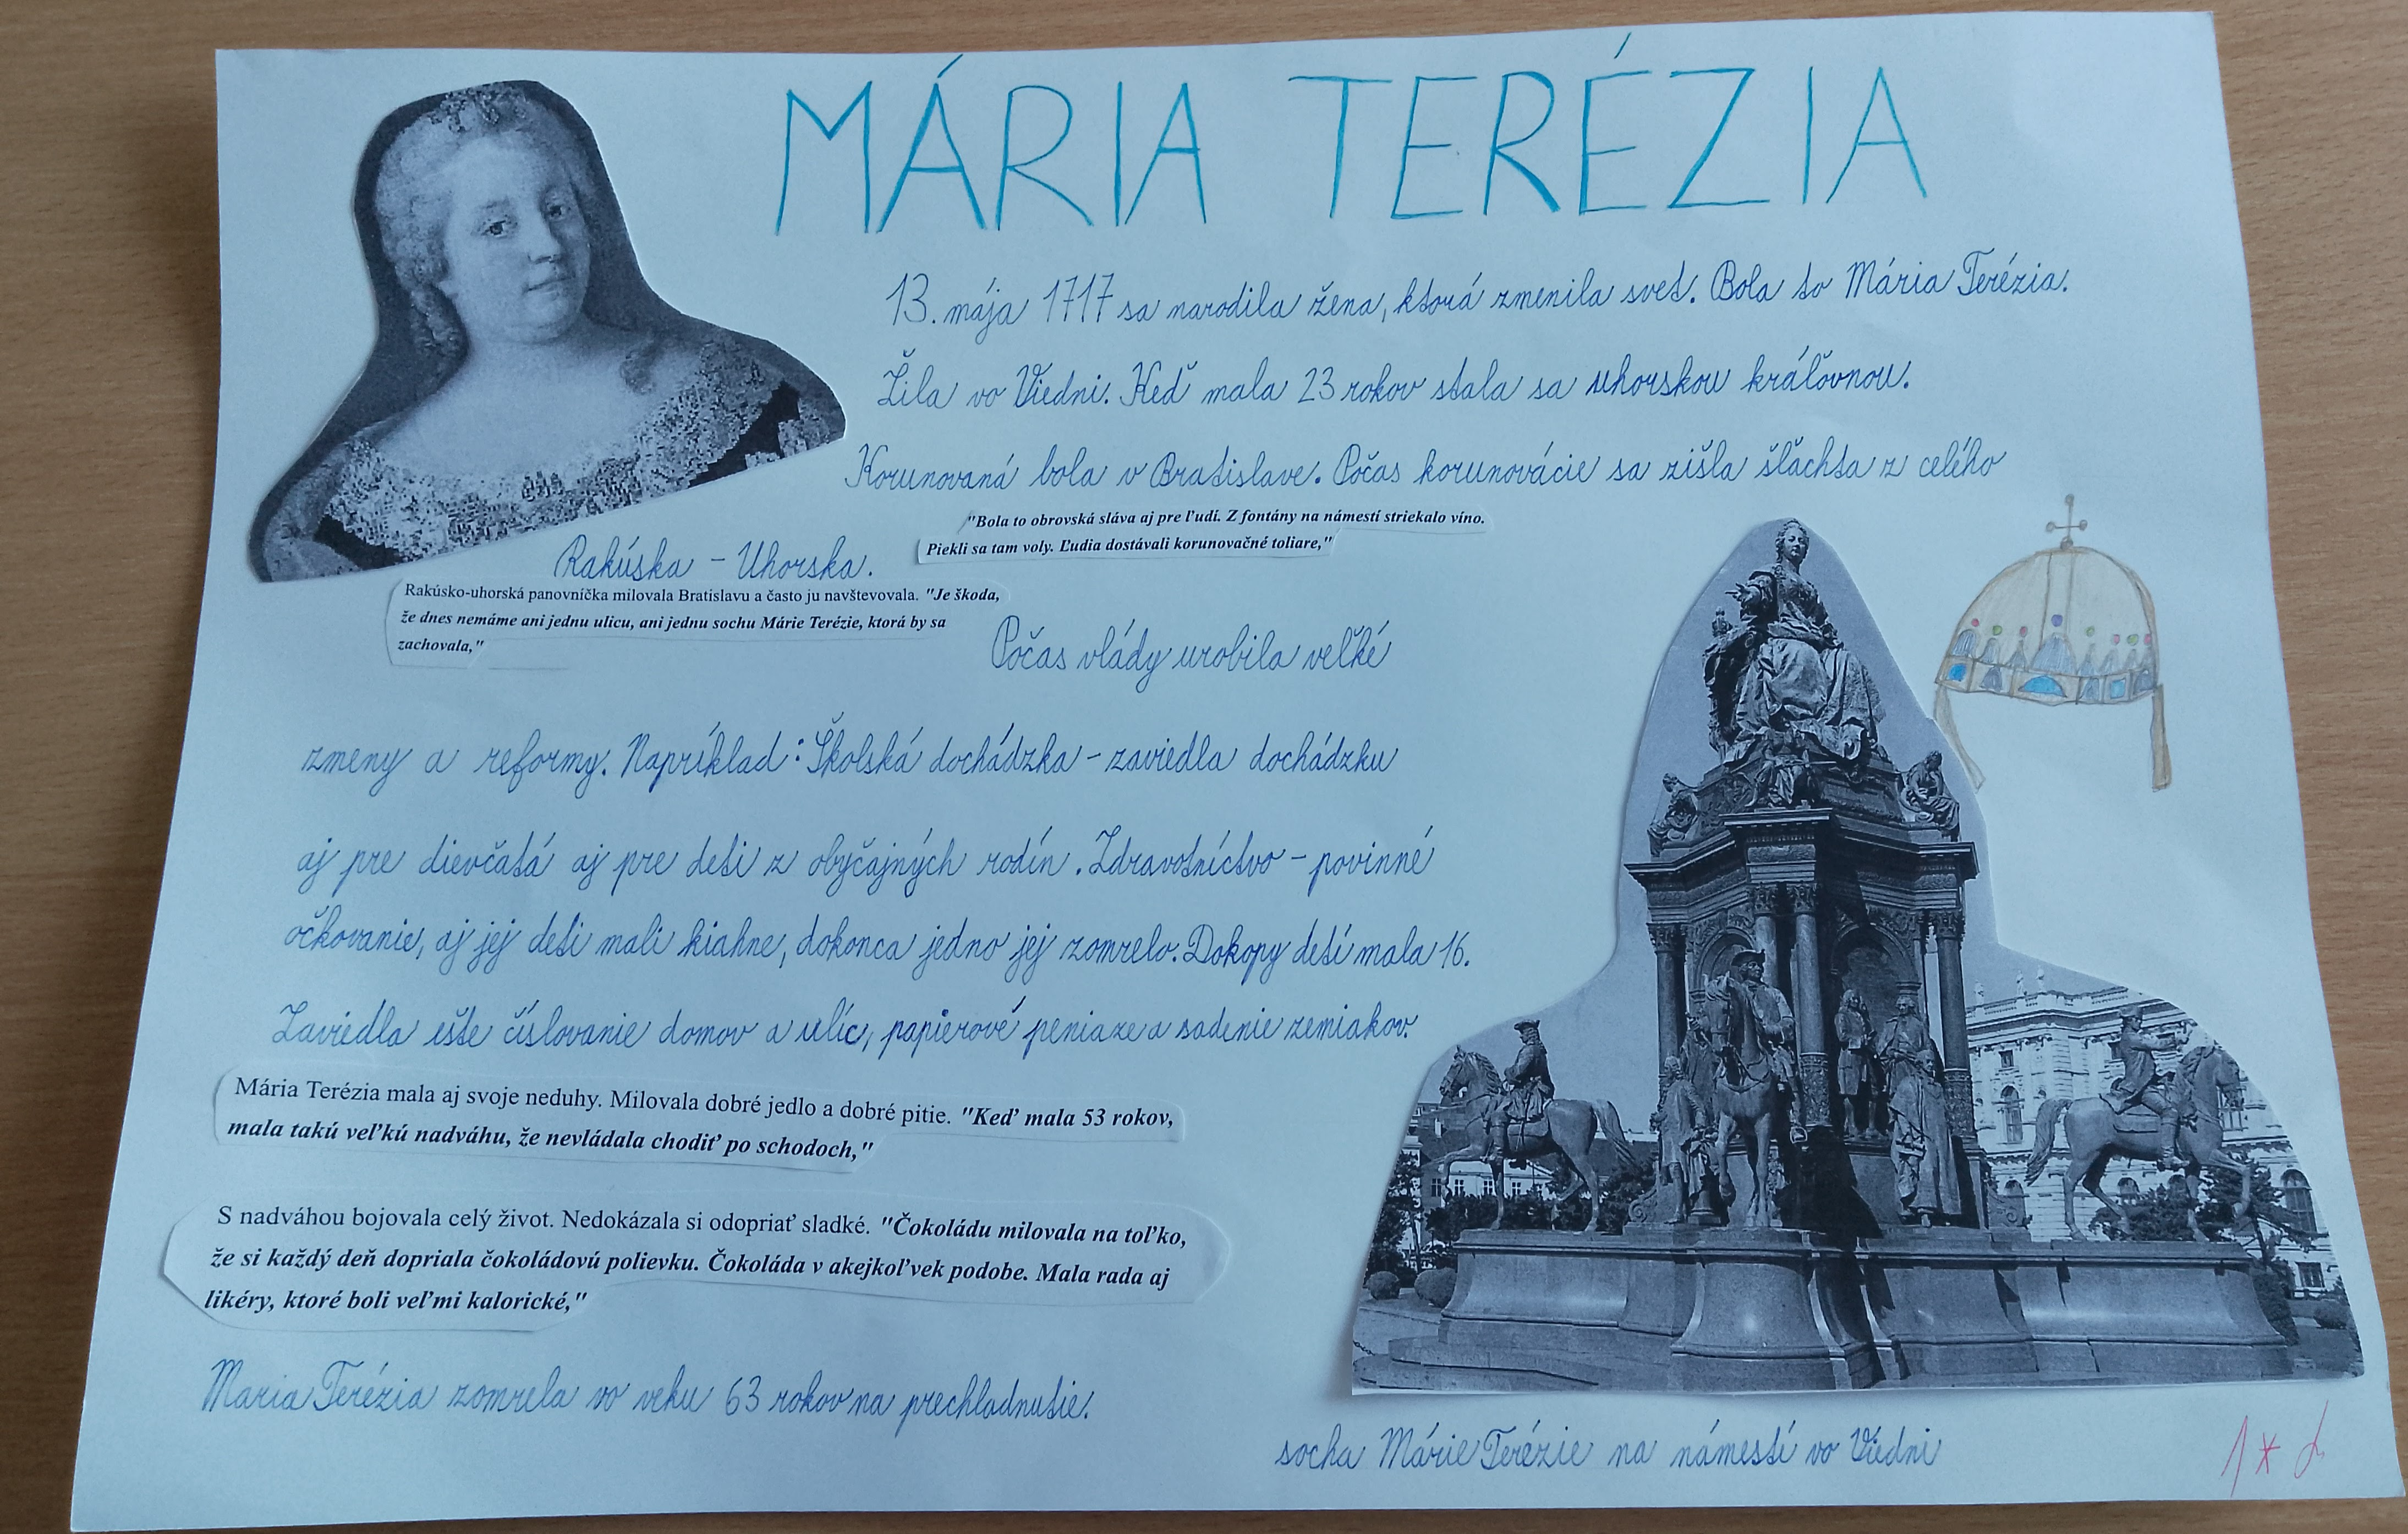 MÁRIA TERÉZIA
13. mája 1717 sa narodila žena, ktorá zmenila svet. Bola to Mária Terézia.
Žila vo Viedni. Keď mala 23 rokov stala sa uhorskou kráľovnou.
Korunovaná bola v Bratislave. Počas korunovácie sa zišla šľachta z celého
Rakúska - Uhorska.
"Bola to obrovská sláva aj pre ľudí. Z fontány na námestí striekalo víno.
Piekli sa tam voly. Ľudia dostávali korunovačné toliare,"
Rakúsko-uhorská panovníčka milovala Bratislavu a často ju navštevovala. "Je škoda,
že dnes nemáme ani jednu ulicu, ani jednu sochu Márie Terézie, ktorá by sa
zachovala,"
Počas vlády urobila veľké
zmeny a reformy. Napríklad: Školská dochádzka - zaviedla dochádzku
aj pre dievčatá aj pre deti z obyčajných rodín. Zdravotníctvo - povinné
očkovanie, aj jej deti mali kiahne, dokonca jedno jej zomrelo. Dokopy detí mala 16.
Zaviedla ešte číslovanie domov a ulíc, papierové peniaze a sadenie zemiakov.
Mária Terézia mala aj svoje neduhy. Milovala dobré jedlo a dobré pitie. "Keď mala 53 rokov,
mala takú veľkú nadváhu, že nevládala chodiť po schodoch,"
S nadváhou bojovala celý život. Nedokázala si odopriať sladké. "Čokoládu milovala na toľko,
že si každý deň dopriala čokoládovú polievku. Čokoláda v akejkoľvek podobe. Mala rada aj
likéry, ktoré boli veľmi kalorické,"
Maria Terézia zomrela vo veku 63 rokov na prechladnutie.
socha Márie Terézie na námestí vo Viedni
1*